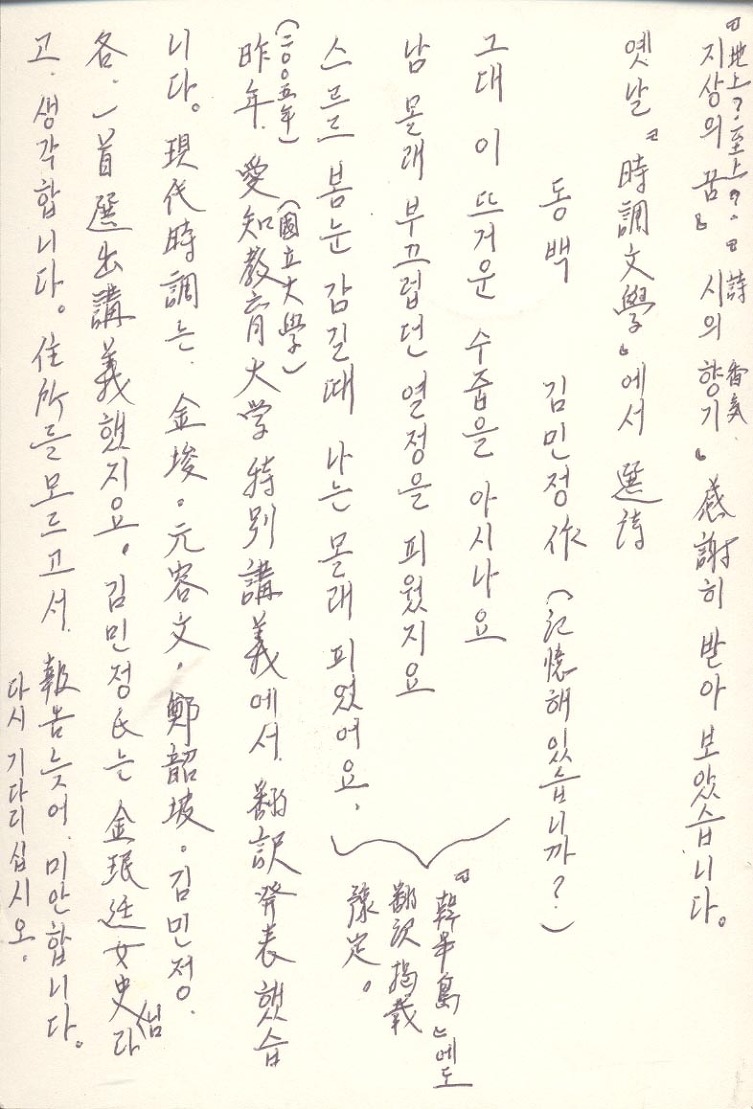 『地上?至上?』『詩 香氣
지상의 꿈』 시의 향기』 感謝히 받아 보았습니다。
옛날『時調文學』에서 選詩
동백 김민정作 (記憶해 있습니까?)
그대 이 뜨거운 수줍을 아시나요
남 몰래 부끄럽던 열정을 피웠지요
스르르 봄눈 감길때 나는 몰래 피었어요.
『韓半島』에도
翻訳掲載
豫定。
(二〇〇五年) (國立大學)
昨年. 愛知教育大学 特別講義에서. 翻訳発表했습
니다。 現代時調는. 金埈。元容文. 鄭韶坡。김민정.
各. 一首 選出講義했지요. 김민정氏는 金珉廷女史님라
고. 생각합니다。 住所를모르고서. 報告늦어. 미안합니다。
다시 기다리십시오.